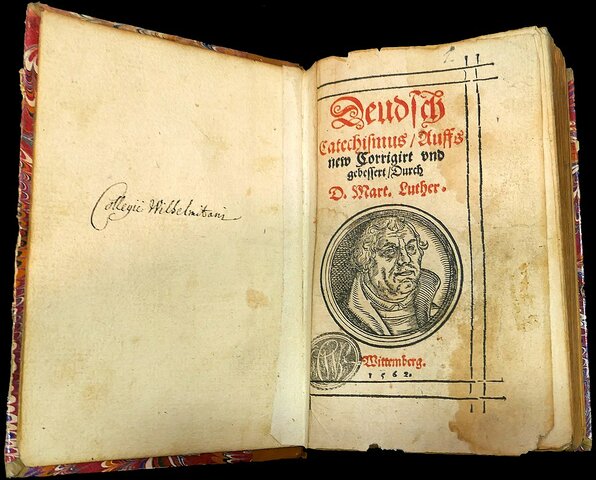 Collegii Wilhelmitani
Deudſch
Catechismus / Auffs
new Corrigirt vnd
gebeſſert / Durch
D. Mart. Luther.
Wittemberg.
1562.